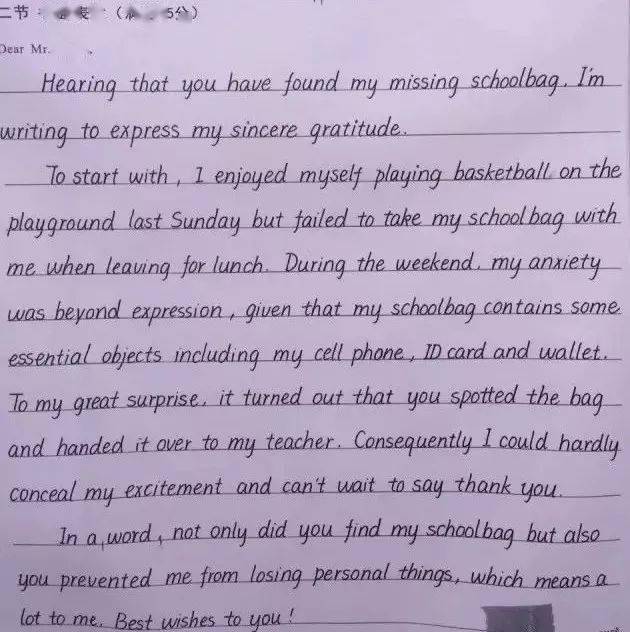 二节
5分)
Dear Mr.
Hearing that you have found my missing schoolbag, I'm
writing to express my sincere gratitude.
To start with, I enjoyed myself playing basketball on the
playground last Sunday but failed to take my schoolbag with
me when leaving for lunch. During the weekend, my anxiety
was beyond expression, given that my schoolbag contains some
essential objects including my cell phone, ID card and wallet.
To my great surprise, it turned out that you spotted the bag
and handed it over to my teacher. Consequently I could hardly
conceal my excitement and can't wait to say thank you.
In a word, not only did you find my schoolbag but also
you prevented me from losing personal things, which means a
lot to me. Best wishes to you!